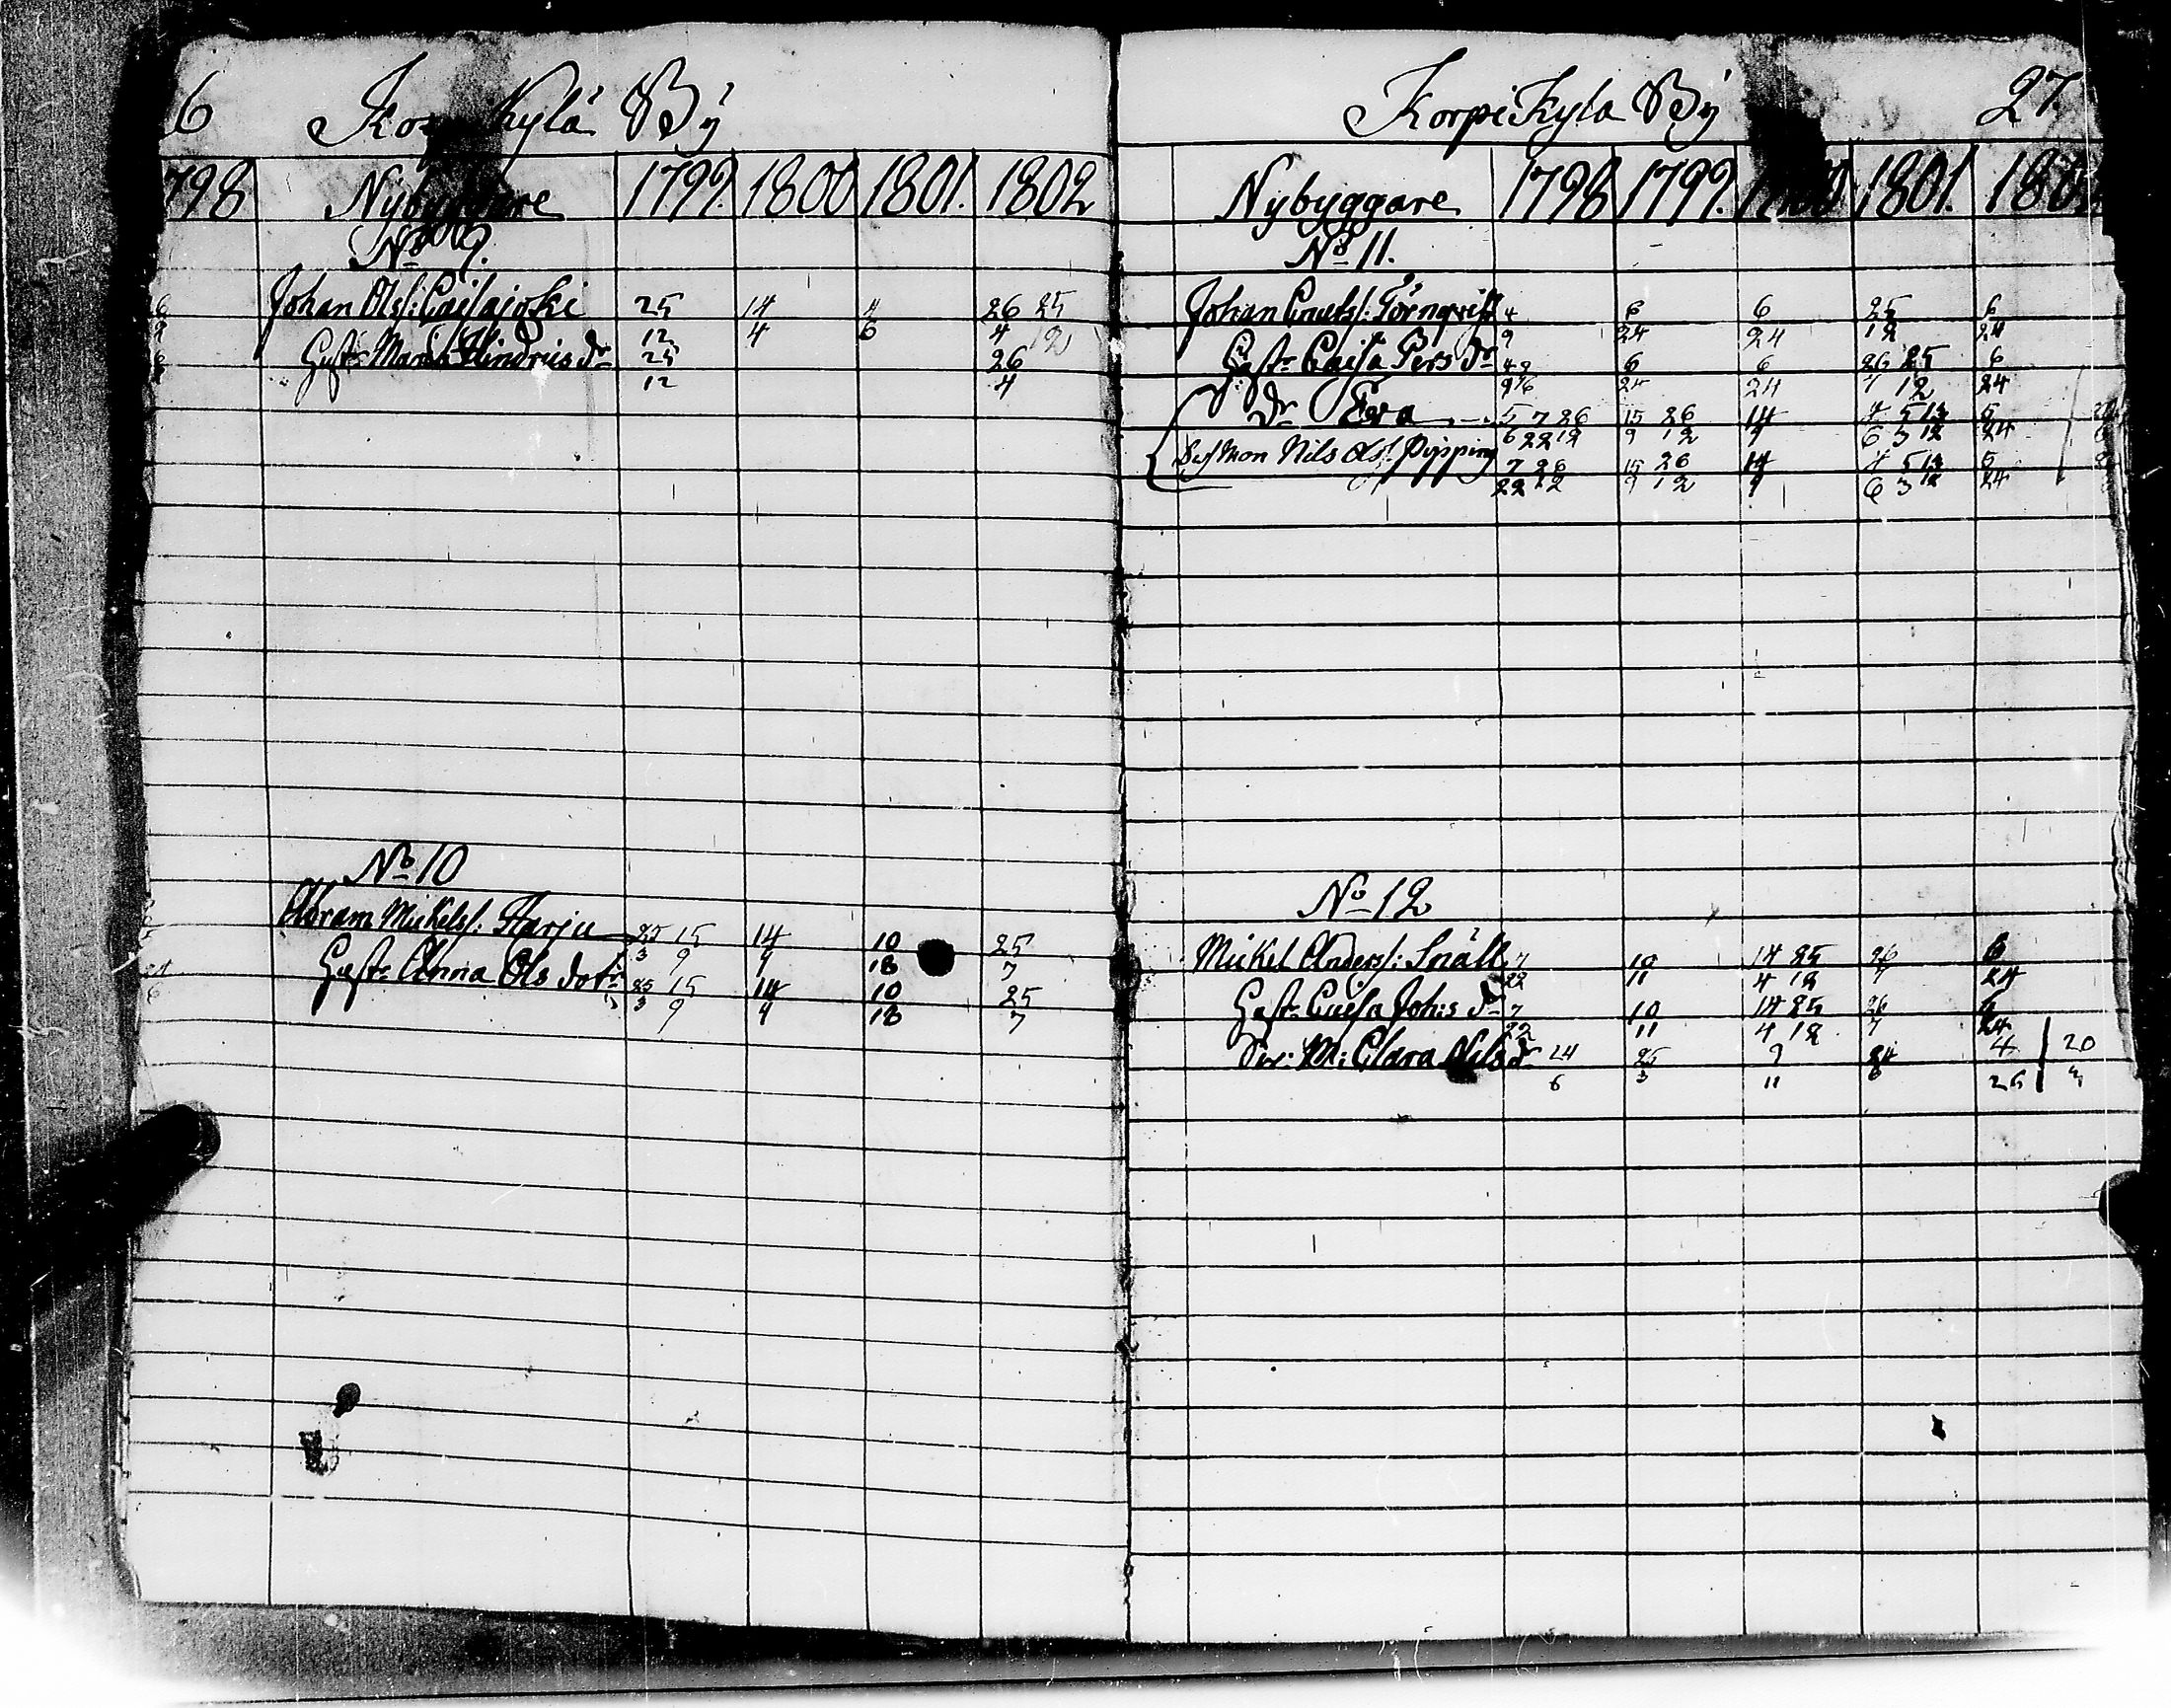 6 Korpikylä By
798 Nybyggare 1799. 1800 1801. 1802
No 9.
6 Johan Olss: Caisajoki 25 14 4 26 25
12 4 6 4 12
Hust: Maria Hindrics dr 25 26
12 4
No 10
Abram Mickelss: Harju 25 15 14 10 25
3 9 4 18 7
Hust: Anna Ols dotr 25 15 14 10 25
6 3 9 4 18 7
Korpikyla By 27.
Nybyggare 1798 1799. 1800 1801.
No 11.
Johan Cnuts: Törnqvist 4 6 6 25 6
9 24 24 12 24
Hust: Caisa Pers dr 6 6 26 25 6
24 24 4 12 24
dr Eva 5 7 26 15 26 14 4 5 14 5
6 22 12 9 12 4 6 3 12 24
Nils Ols: Pipping 7 26 15 26 14 4 5 14 5
22 12 9 12 4 6 3 12 24
No 12
Mickel Anderss: Snäll 7 10 14 25 26 6
22 11 4 12 7 24
Hust: Caisa Joh:s dr 7 10 14 25 26 6
22 11 4 12 7 24
M: Clara Nils dr 24 25 9 24 4 20
6 3 11 6 26